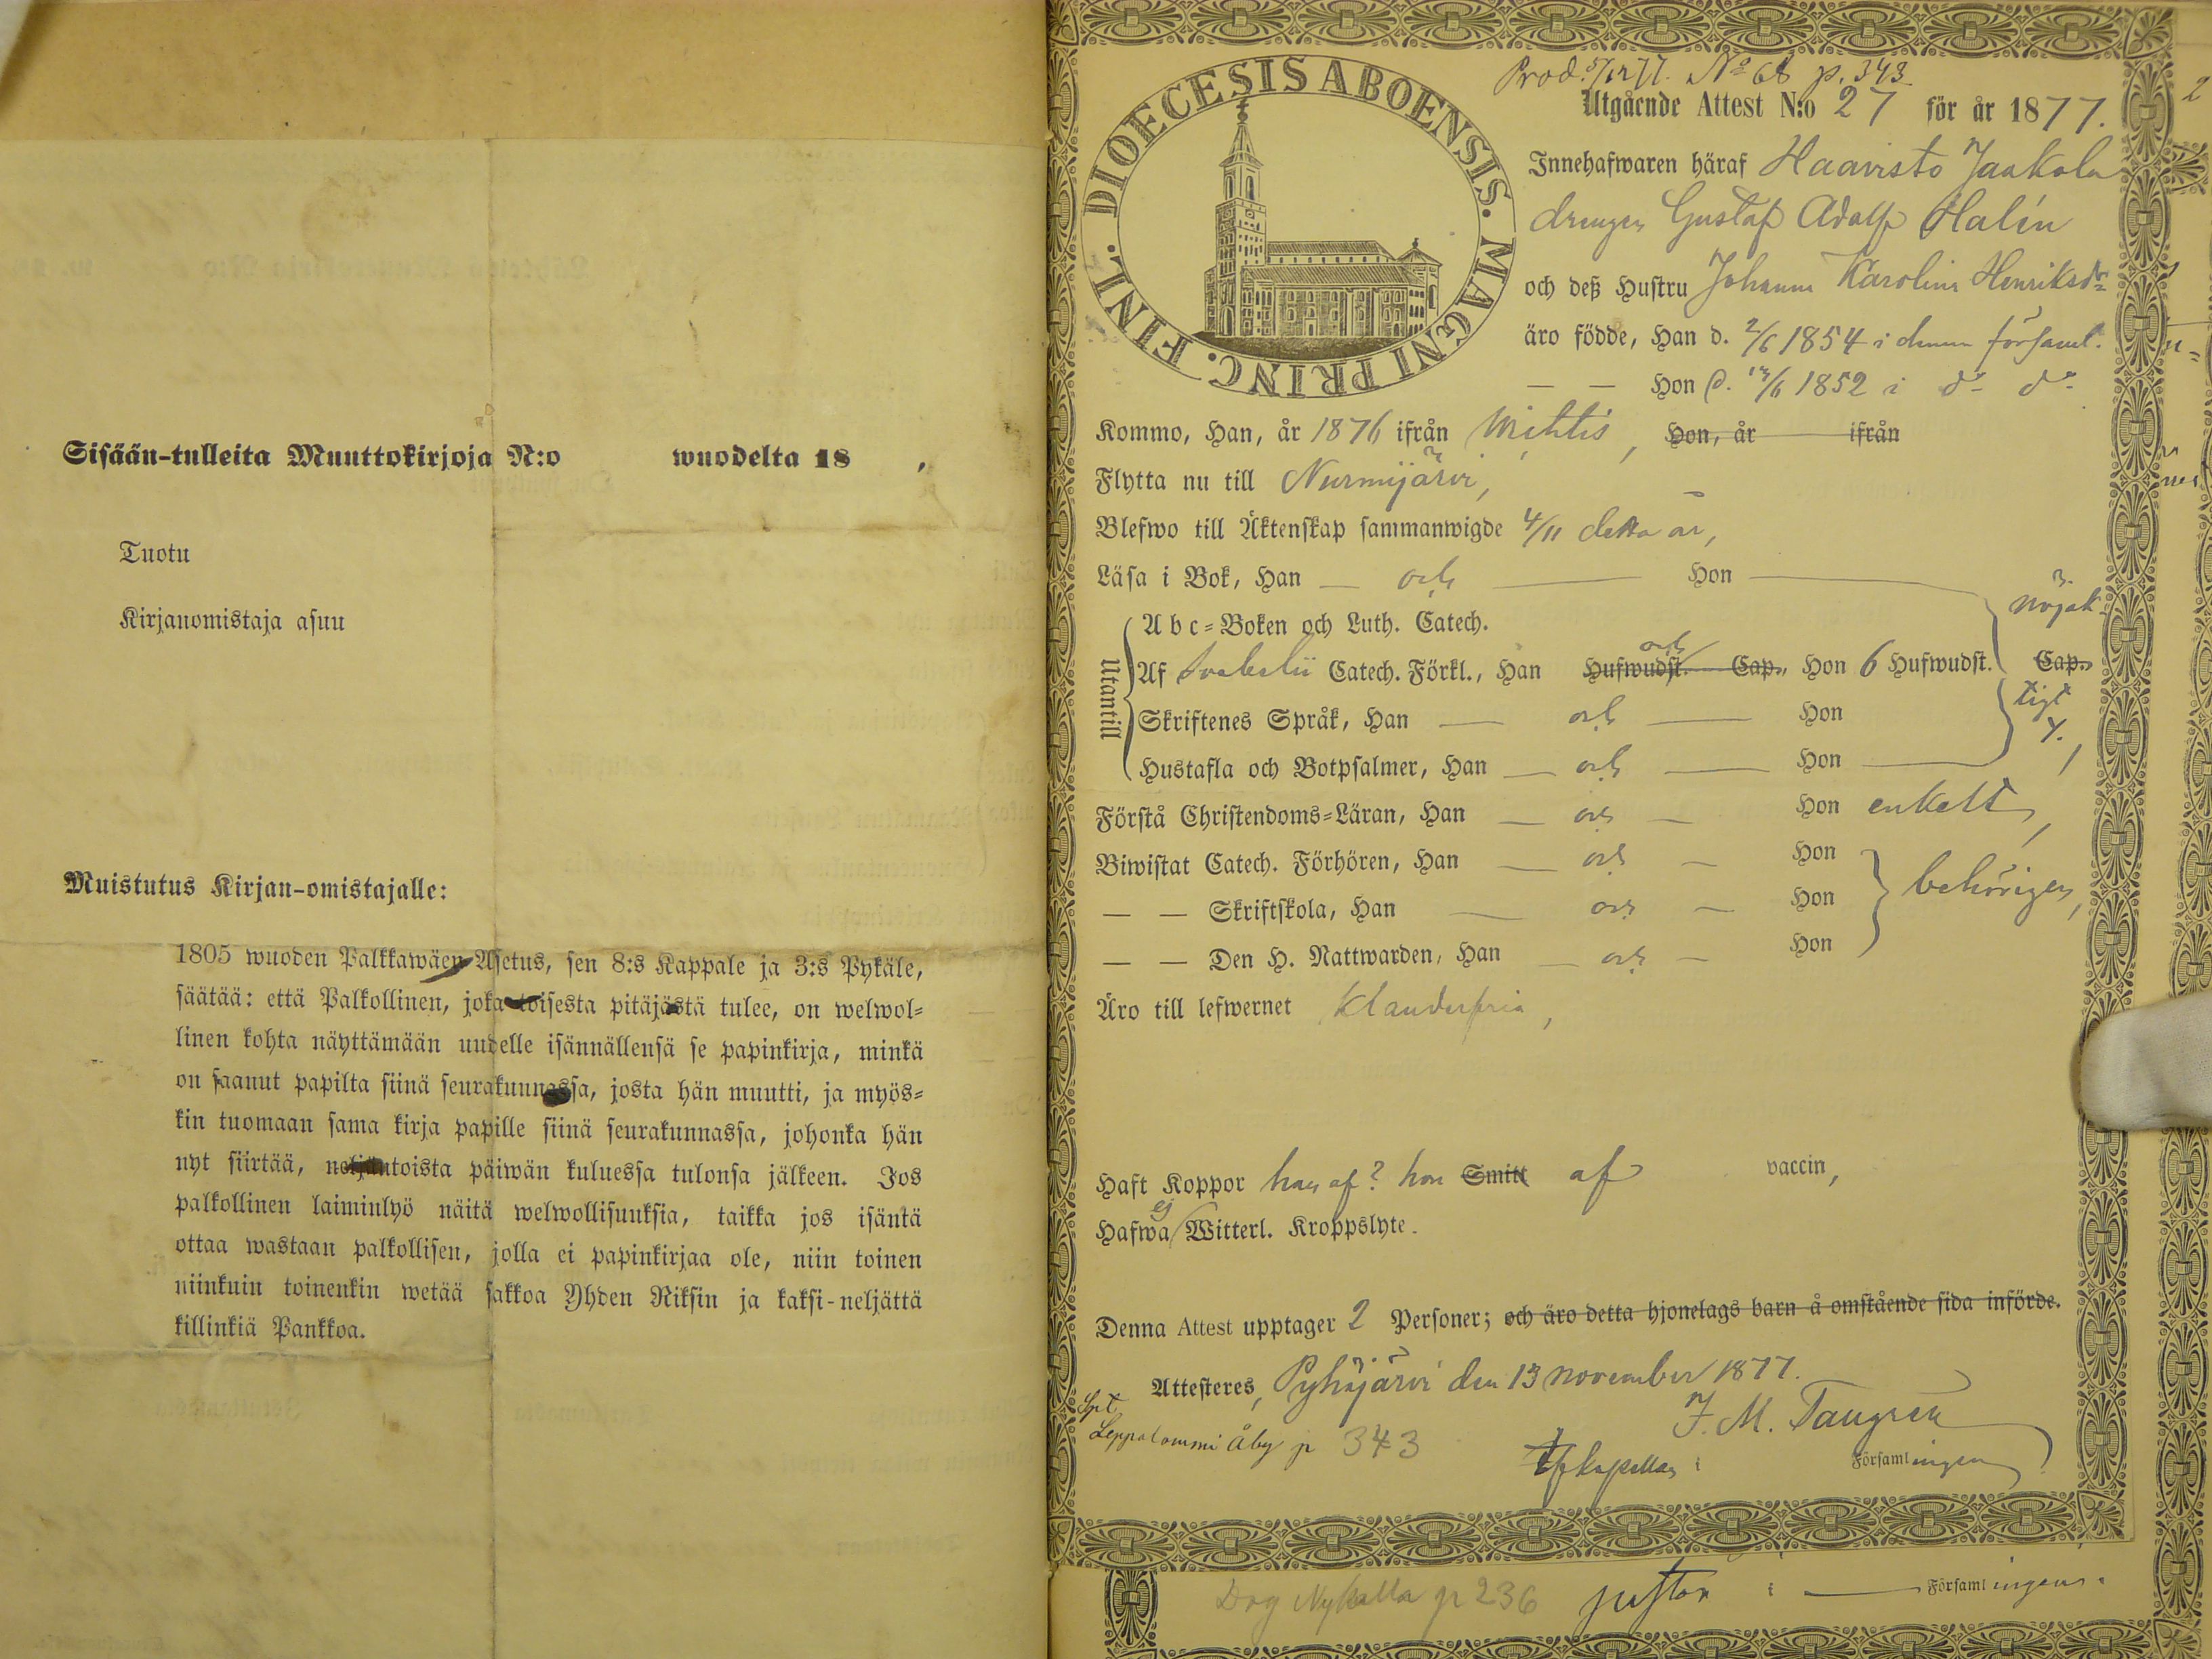 Sisään-tulleita Muuttokirjoja N:o wuodelta 18 ,
Tuotu
Kirjanomistaja asuu
Muistutus Kirjan-omistajalle:
1805 wuoden Palkkawäen Asetus, sen 8:s Kappale ja 3:s Pykäle,
säätää: että Palkollinen, joka toisesta pitäjästä tulee, on welwol=
linen kohta näyttämään uudelle isännällensä se papinkirja, minkä
on saanut papilta siinä seurakunnassa, josta hän muutti, ja myös=
kin tuomaan sama kirja papille siinä seurakunnassa, johonka hän
nyt siirtää, neljäntoista päiwän kuluessa tulonsa jälkeen. Jos
palkollinen laiminlyö näitä welwollisuuksia, taikka jos isäntä
ottaa wastaan palkollisen, jolla ei papinkirjaa ole, niin toinen
niinkuin toinenkin wetää sakkoa Yhden Riksin ja kaksi-neljättä
killinkiä Pankkoa.
DIOECESIS ABOENSIS. MAGNI PRINC. FINL.
Prod. 5/12 77. No 68 p. 343
Utgående Attest N:o 27 för år 1877.
Innehafwaren häraf Haavisto Jaakola
drengen Gustaf Adolf Halin
och deß Hustru Johanna Karolina Henriksdr
äro födde, Han d. 2/6 1854 i denna församl.
— — Hon d. 13/6 1852 i do do
Kommo, Han, år 1876 ifrån Wichtis, Hon, år ifrån
Flytta nu till Nurmijärvi,
Blefwo till Äktenskap sammanwigde 4/11 detta år,
Läsa i Bok, Han — och — Hon —
nöjak-
Utantill
A b c=Boken och Luth. Catech.
Af Svebelii Catech. Förkl., Han Hufwudst. Cap., och Hon 6 Hufwudst. Cap.
tigt
Skriftenes Språk, Han — och — Hon
Hustafla och Botpsalmer, Han — och — Hon —
Förstå Christendoms=Läran, Han — och — Hon enkelt,
Biwistat Catech. Förhören, Han — och — Hon
— — Skriftskola, Han — och — Hon behörigen,
— — Den H. Nattwarden, Han — och — Hon
Äro till lefwernet klanderfria,
Haft Koppor han af? hon Smitt af vaccin,
Hafwa ej Witterl. Kroppslyte.
Denna Attest upptager 2 Personer; och äro detta hjonelags barn å omstående sida införde.
Attesteres, Pyhäjärvi den 13 november 1877.
J. M. Tangren
Leppalammi Åby p 343
kapellan i Församlingen
Dog Nykulla p 236 pastor i — Församlingen.